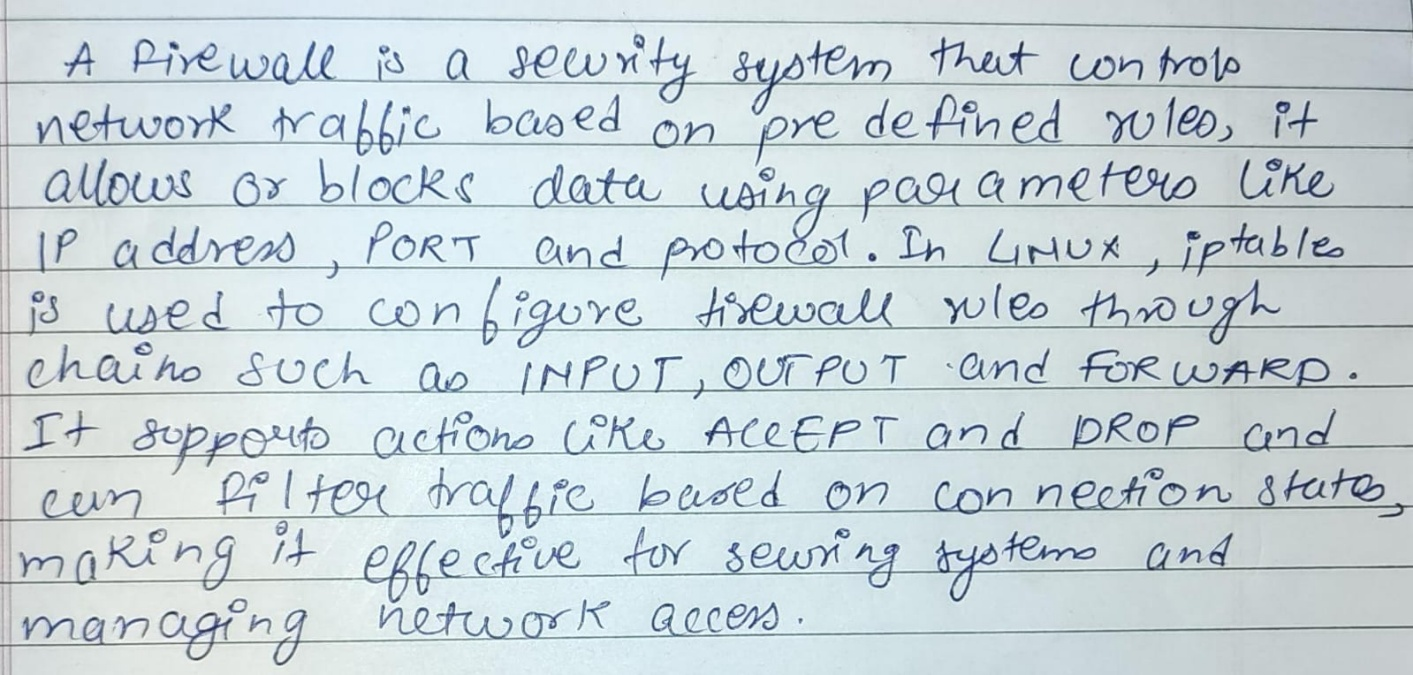 A firewall is a security system that controls
network traffic based on pre defined rules, it
allows or blocks data using parameters like
IP address, PORT and protocol. In LINUX, iptables
is used to configure firewall rules through
chains such as INPUT, OUTPUT and FORWARD.
It supports actions like ACCEPT and DROP and
can filter traffic based on connection states,
making it effective for securing systems and
managing network access.